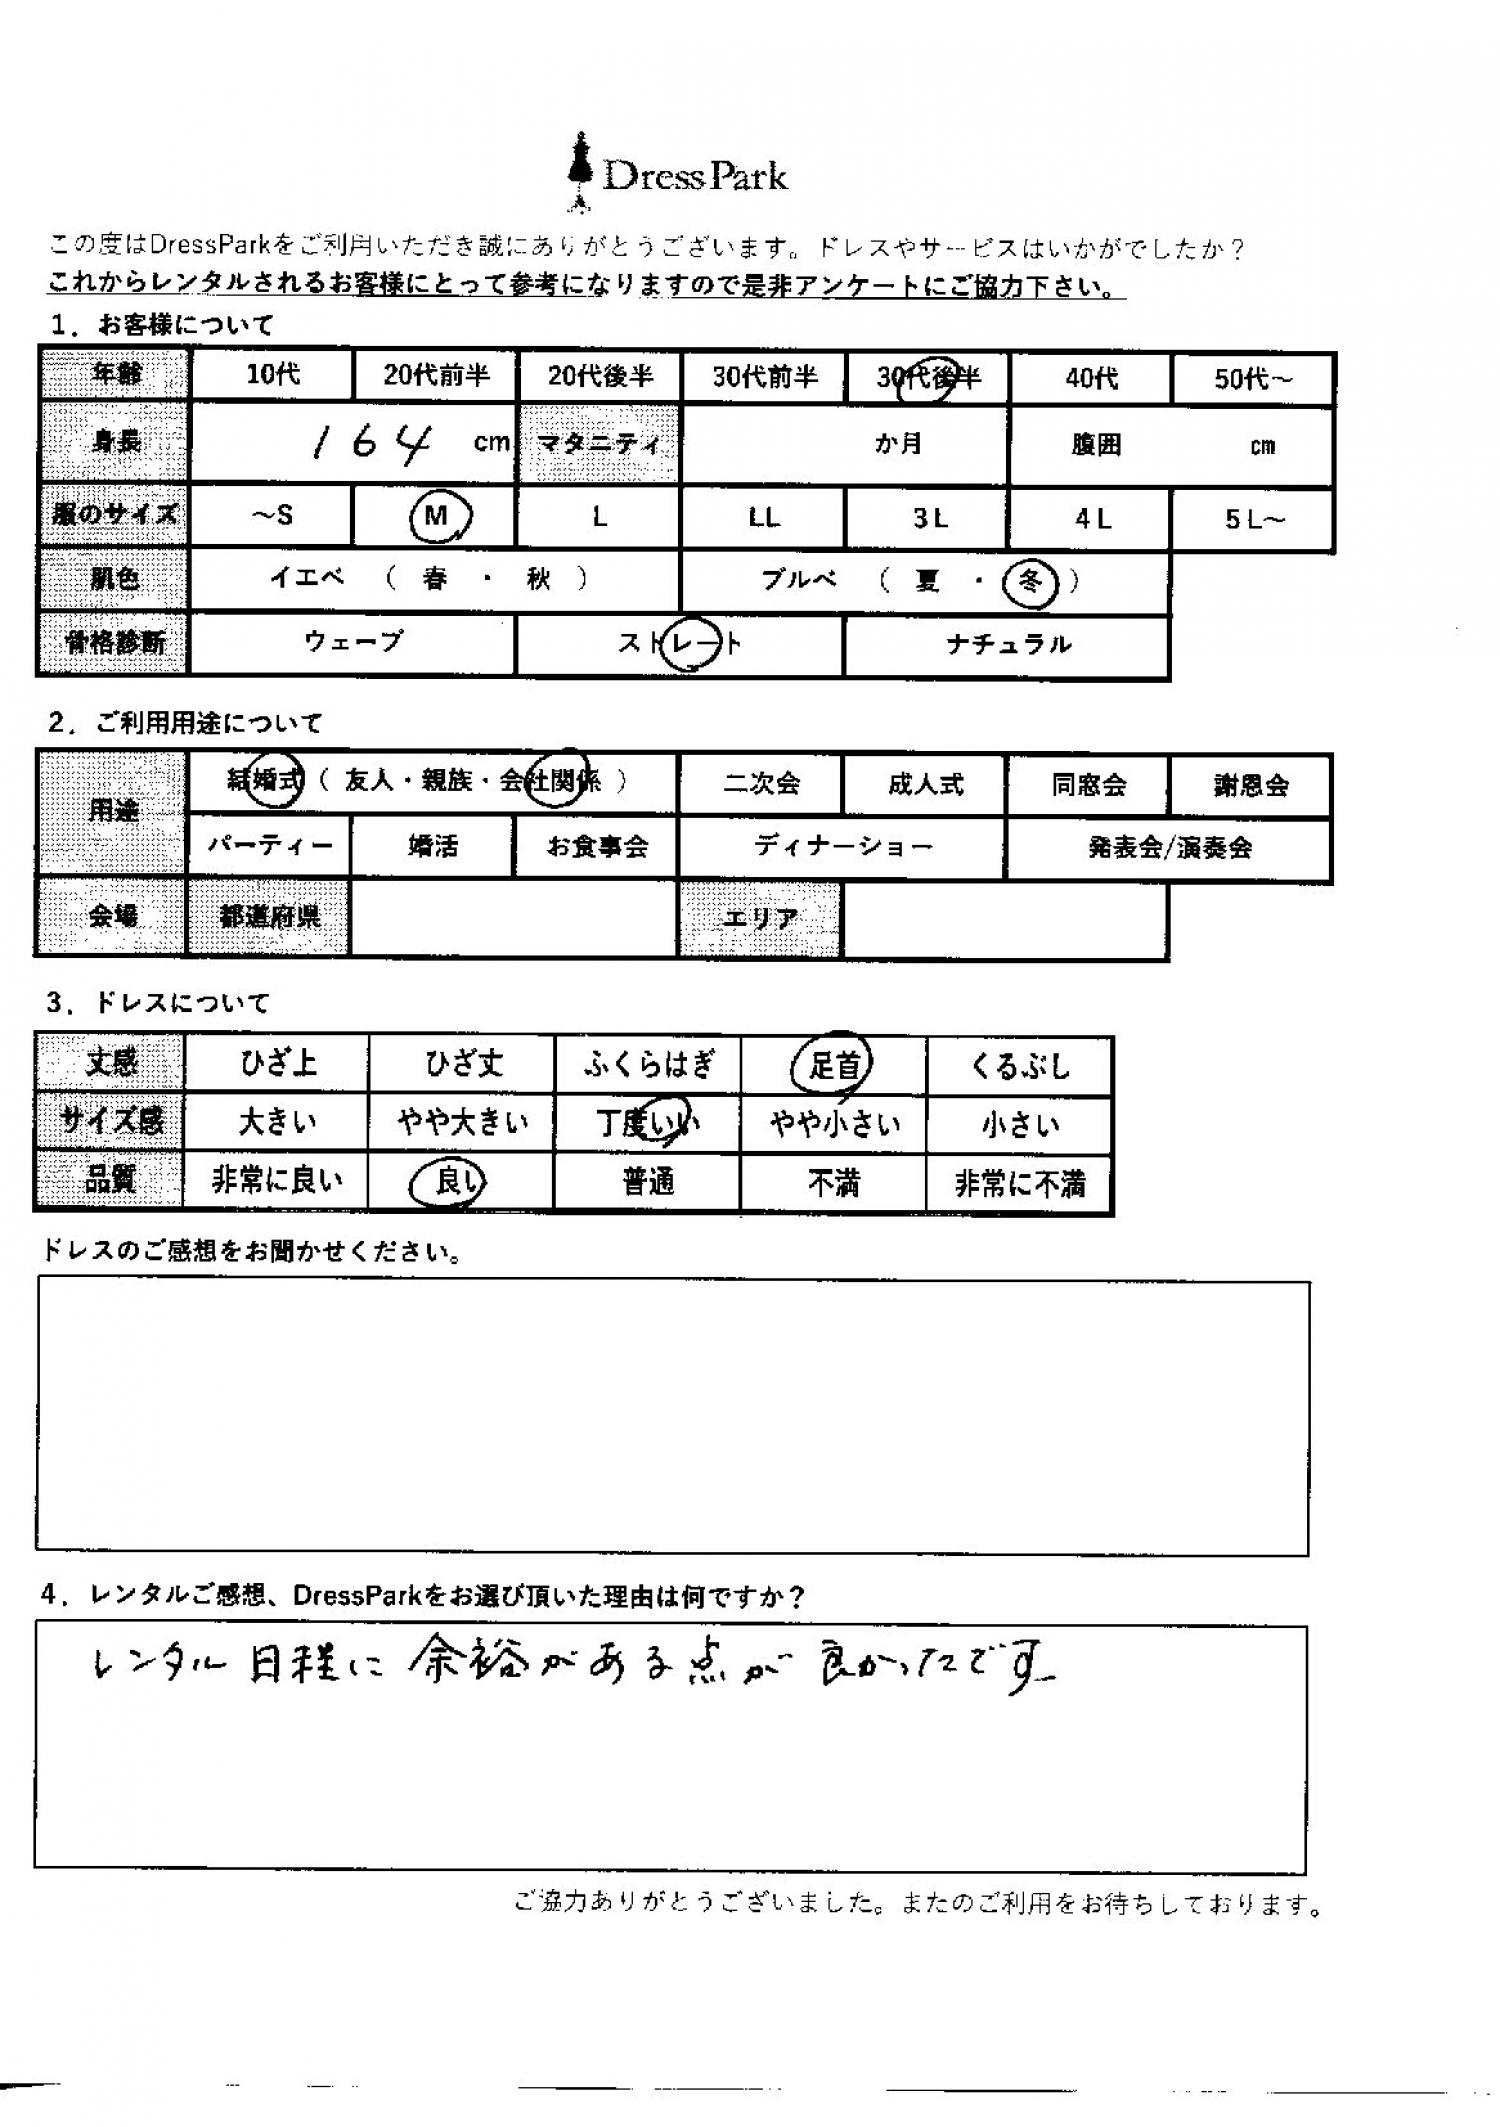 DressPark
この度はDressParkをご利用いただき誠にありがとうございます。ドレスやサービスはいかがでしたか？
これからレンタルされるお客様にとって参考になりますので是非アンケートにご協力下さい。
1．お客様について
年齢 10代 20代前半 20代後半 30代前半 30代後半 40代 50代～
身長 164 cm マタニティ か月 腹囲 cm
服のサイズ ～S M L LL 3L 4L 5L～
肌色 イエベ （ 春 ・ 秋 ） ブルベ （ 夏 ・ 冬 ）
骨格診断 ウェーブ ストレート ナチュラル
2．ご利用用途について
用途 結婚式（ 友人・親族・会社関係 ） 二次会 成人式 同窓会 謝恩会
パーティー 婚活 お食事会 ディナーショー 発表会/演奏会
会場 都道府県 エリア
3．ドレスについて
丈感 ひざ上 ひざ丈 ふくらはぎ 足首 くるぶし
サイズ感 大きい やや大きい 丁度いい やや小さい 小さい
品質 非常に良い 良い 普通 不満 非常に不満
ドレスのご感想をお聞かせください。
4．レンタルご感想、DressParkをお選び頂いた理由は何ですか？
レンタル日程に余裕がある点が良かったです
ご協力ありがとうございました。またのご利用をお待ちしております。